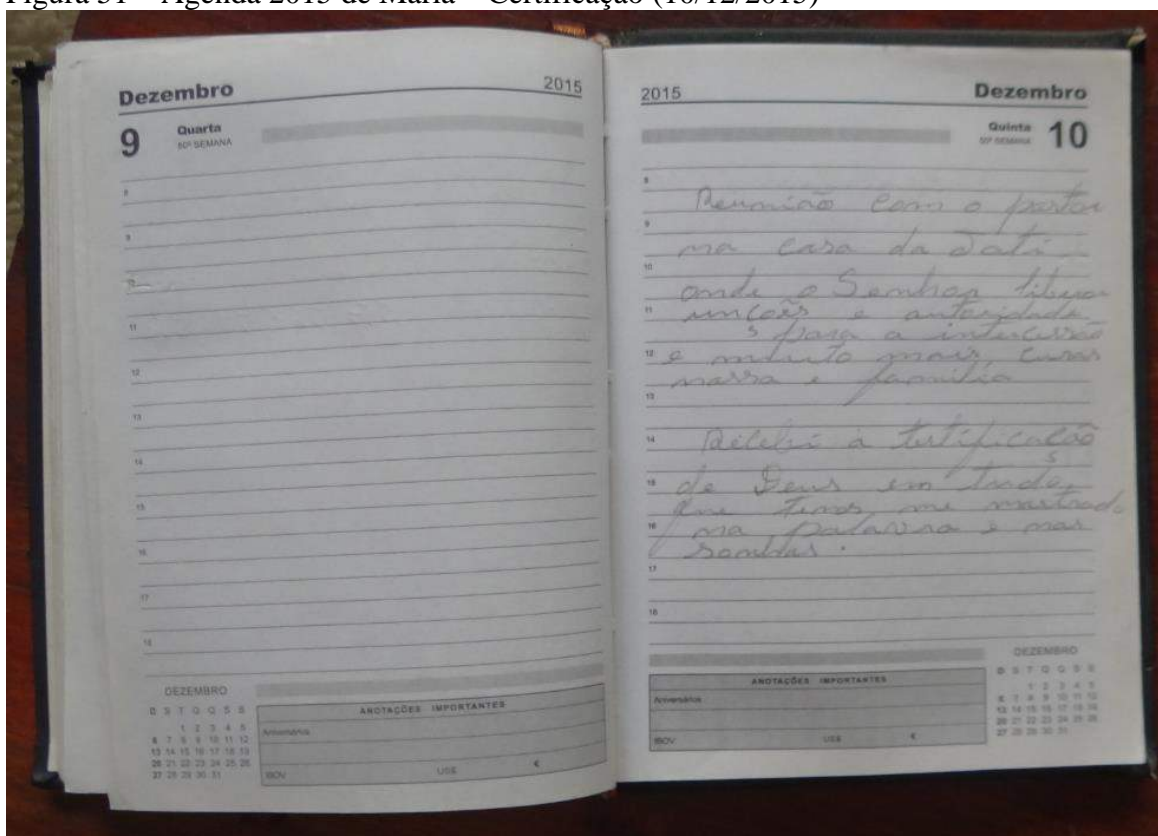 Figura 31 – Agenda 2015 de Maria – Certificação (10/12/2015)
Dezembro 2015
9 Quarta
50ª SEMANA
8
9
10
11
12
13
14
15
16
17
18
DEZEMBRO
D S T Q Q S S
1 2 3 4 5
6 7 8 9 10 11 12
13 14 15 16 17 18 19
20 21 22 23 24 25 26
27 28 29 30 31
ANOTAÇÕES IMPORTANTES
Aniversários
IBOV US$ €
2015 Dezembro
Quinta 10
50ª SEMANA
8
Reunião com o pastor
9
na casa da
10
onde o Senhor liberou
11
unções e autoridade
s para a intercessão
12
e muito mais, curas
massa e família
13
14
Recebi a testificação
s
15
de Deus em tudo
que temos me mostrado
16
na palavra e nas
sonhos.
17
18
ANOTAÇÕES IMPORTANTES
Aniversários
IBOV US$ €
DEZEMBRO
D S T Q Q S S
1 2 3 4 5
6 7 8 9 10 11 12
13 14 15 16 17 18 19
20 21 22 23 24 25 26
27 28 29 30 31